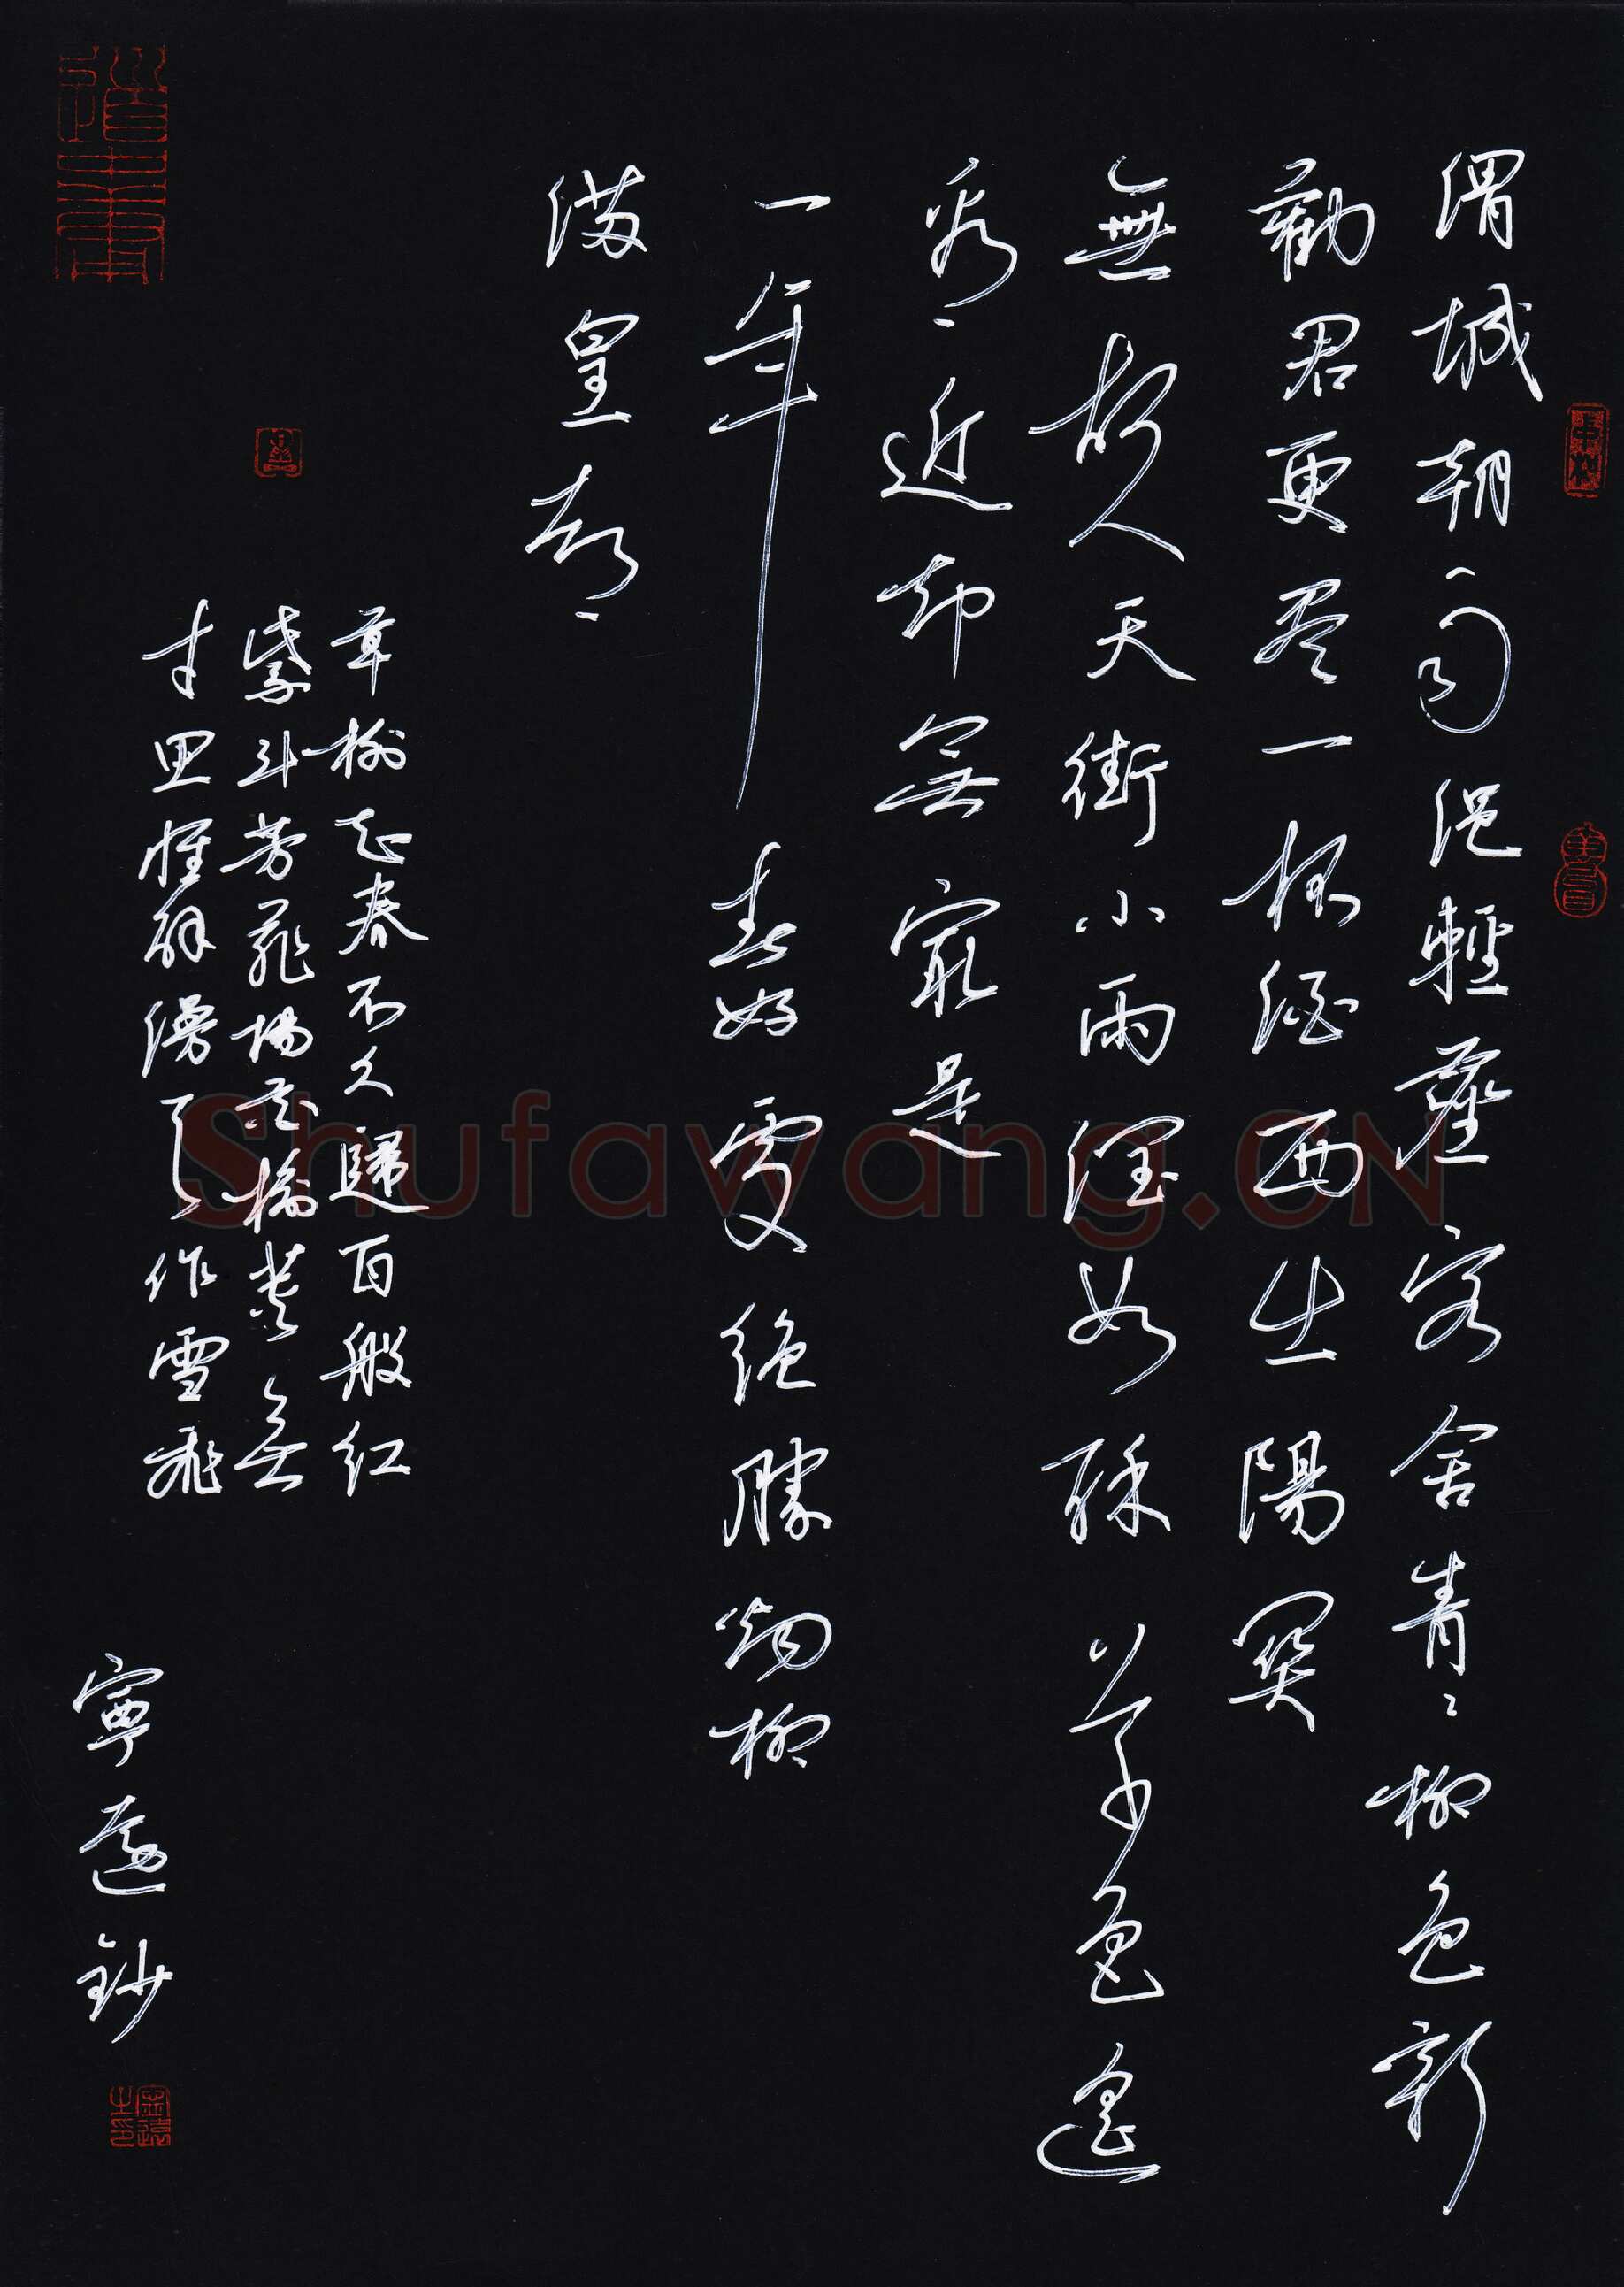 渭城朝雨浥輕塵客舍青々柳色新
勸君更盡一杯酒西出陽關
無故人天街小雨潤如酥草色遙
看近却無最是
一年春好處絕勝烟柳
滿皇都
草樹知春不久歸百般紅
紫斗芳菲楊花榆莢無
才思惟解漫天作雪飛
寧遠鈔
寧遠之印
Shufawang.CN